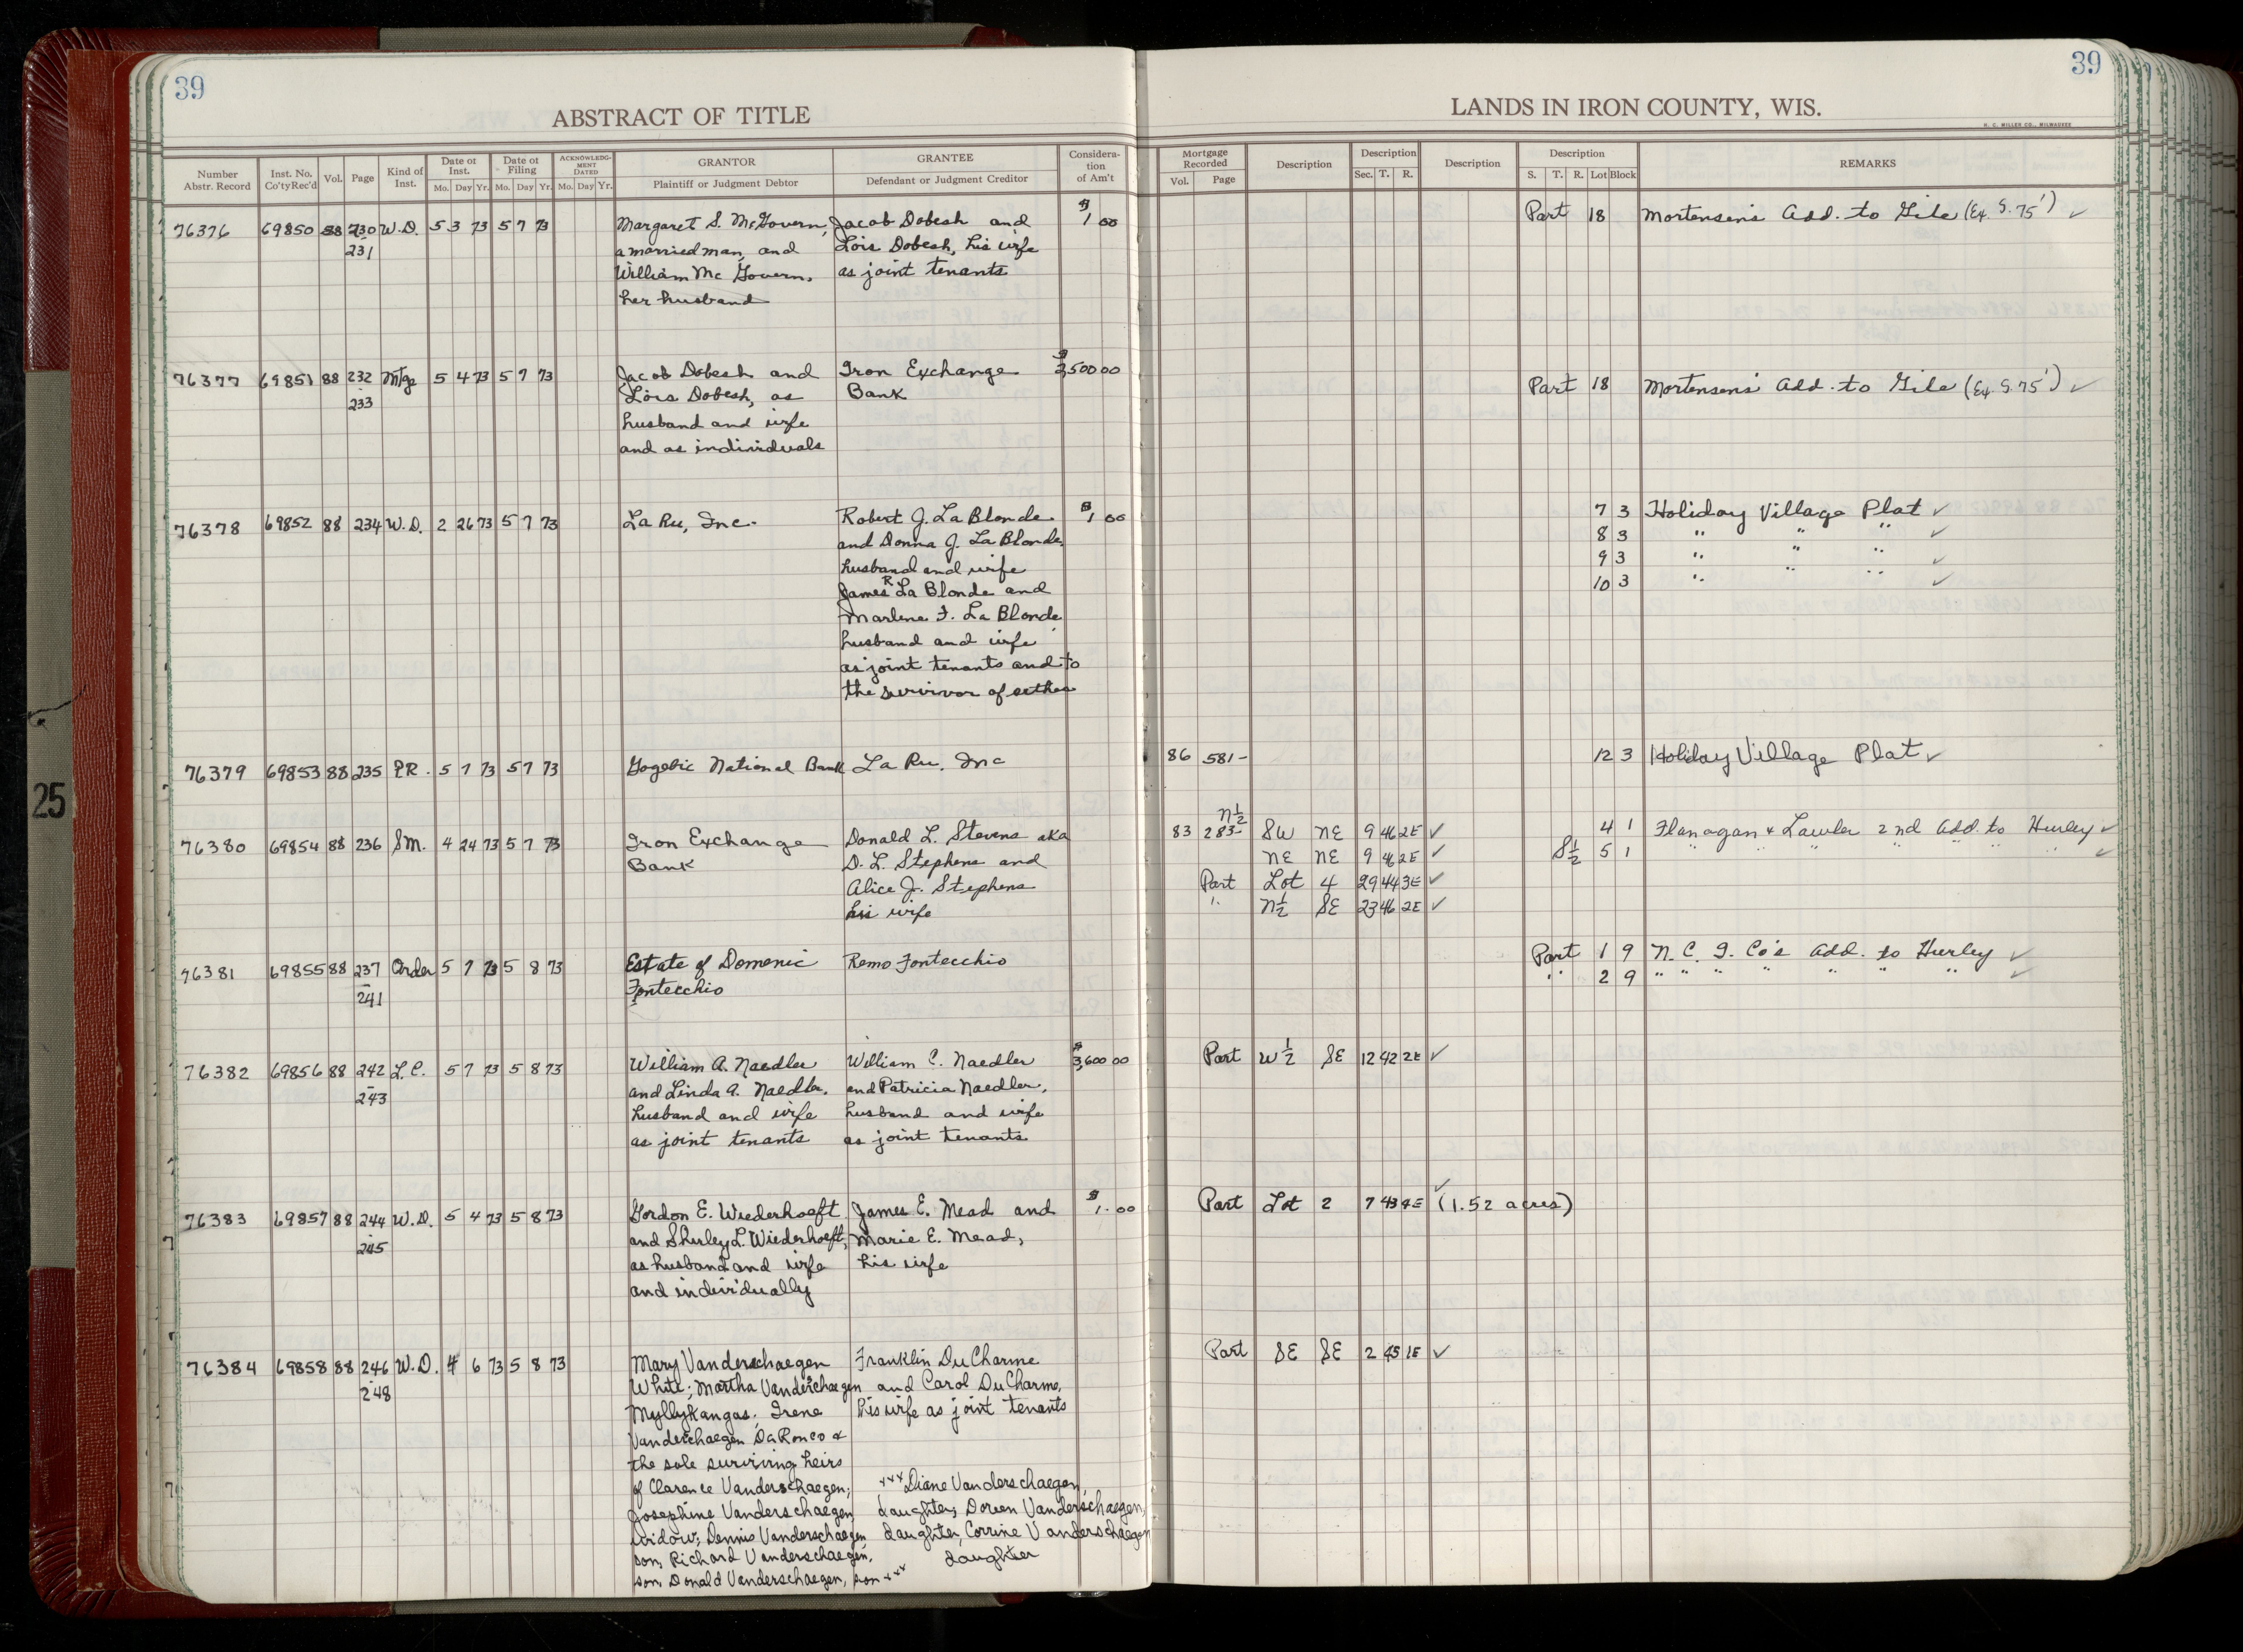 39
39
ABSTRACT OF TITLE
LANDS IN IRON COUNTY, WIS.
H. C. MILLER CO., MILWAUKEE
Number Abstr. Record
Inst. No. Co'ty Rec'd
Vol.
Page
Kind of Inst.
Date of Inst.
Mo. Day Yr.
Date of Filing
Mo. Day Yr.
ACKNOWLEDGMENT DATED
Mo. Day Yr.
GRANTOR
Plaintiff or Judgment Debtor
GRANTEE
Defendant or Judgment Creditor
Consideration of Am't
Mortgage Recorded
Vol. Page
Description
Description
Sec. T. R.
Description
Description
S. T. R. Lot Block
REMARKS
76376 69850 88 230 W.D. 5 3 73 5 7 73 Margaret S. McGovern, Jacob Dobesh and $1 00 Part 18 Mortensen's Add. to Gile (Ex. S. 75') ✓
231 a married man, and Lois Dobesh, his wife
William McGovern, as joint tenants
her husband
76377 69851 88 232 Mtge 5 4 73 5 7 73 Jacob Dobesh and Iron Exchange $3,500 00 Part 18 Mortensen's Add. to Gile (Ex. S. 75') ✓
233 Lois Dobesh, as Bank
husband and wife
and as individuals
76378 69852 88 234 W.D. 2 26 73 5 7 73 La Ru, Inc. Robert J. La Blonde $1 00 7 3 Holiday Village Plat ✓
and Donna J. La Blonde, 8 3 " " " ✓
husband and wife 9 3 " " " ✓
James R La Blonde and 10 3 " " " ✓
Marlene F. La Blonde
husband and wife
as joint tenants and to
the survivor of either
76379 69853 88 235 P.R. 5 7 73 5 7 73 Gogebic National Bank La Ru, Inc 86 581- 12 3 Holiday Village Plat ✓
76380 69854 88 236 SM. 4 24 73 5 7 73 Iron Exchange Donald L. Stevens aka 83 283- N½ SW NE 9 46 2E ✓ 4 1 Flanagan & Lawler 2nd Add. to Hurley ✓
Bank D. L. Stephens and NE NE 9 46 2E ✓ S½ 5 1 " " " " " " ✓
Alice J. Stephens Part Lot 4 29 44 3E ✓
his wife " N½ SE 23 46 2E ✓
76381 69855 88 237 Order 5 7 73 5 8 73 Estate of Domenic Remo Fontecchio Part 1 9 N. C. I. Co's Add. to Hurley ✓
241 Fontecchio " 2 9 " " " " " " " ✓
76382 69856 88 242 L.C. 5 7 73 5 8 73 William A. Naedler William C. Naedler $3,600 00 Part W½ SE 12 42 2E ✓
243 and Linda A. Naedler, and Patricia Naedler,
husband and wife husband and wife
as joint tenants as joint tenants
76383 69857 88 244 W.D. 5 4 73 5 8 73 Gordon E. Wiederhoeft James E. Mead and $1.00 Part Lot 2 7 43 4E ✓ (1.52 acres)
245 and Shirley L. Wiederhoeft, Marie E. Mead,
as husband and wife his wife
and individually
76384 69858 88 246 W.D. 4 6 73 5 8 73 Mary Vanderschaegen Franklin DuCharme Part SE SE 2 45 1E ✓
248 White; Martha Vanderschaegen and Carol DuCharme,
Myllykangas; Irene his wife as joint tenants
Vanderschaegen DaRonco &
the sole surviving heirs
of Clarence Vanderschaegen; *** Diane Vanderschaegen,
Josephine Vanderschaegen, daughter; Doreen Vanderschaegen,
widow; Dennis Vanderschaegen daughter, Corrine Vanderschaegen
son, Richard Vanderschaegen, daughter
son, Donald Vanderschaegen, son ***
25